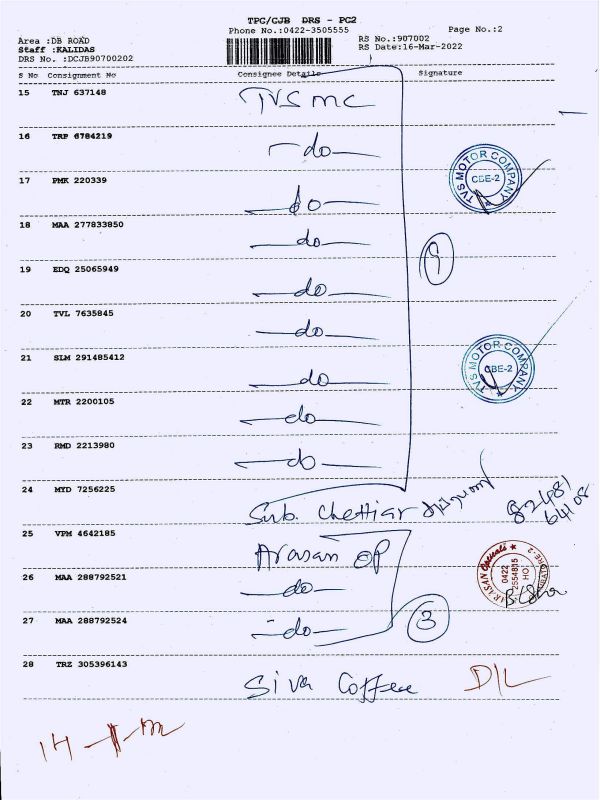 TPC/CJB DRS - PC2
Phone No.:0422-3505555
Page No.:2
Area :DB ROAD
RS No.:907002
Staff :KALIDAS
RS Date:16-Mar-2022
DRS No. :DCJB90700202
S No Consignment No Consignee Details Signature
15 TNJ 637148 TVS MC
16 TRP 6784219 -do-
17 PMK 220339 -do-
TVS MOTOR COMPANY
CBE-2
18 MAA 277833850 -do-
9
19 EDQ 25065949 -do-
20 TVL 7635845 -do-
21 SLM 291485412 -do-
TVS MOTOR COMPANY
CBE-2
22 MTR 2200105 -do-
23 RMD 2213980 -do-
24 MYD 7256225 Sub. Chettiar
82481
64108
25 VPM 4642185 Arasan OP
26 MAA 288792521 -do-
ARASAN
0422
2554815
HO
27 MAA 288792524 -do-
3
28 TRZ 305396143 Siva Coffee D/L